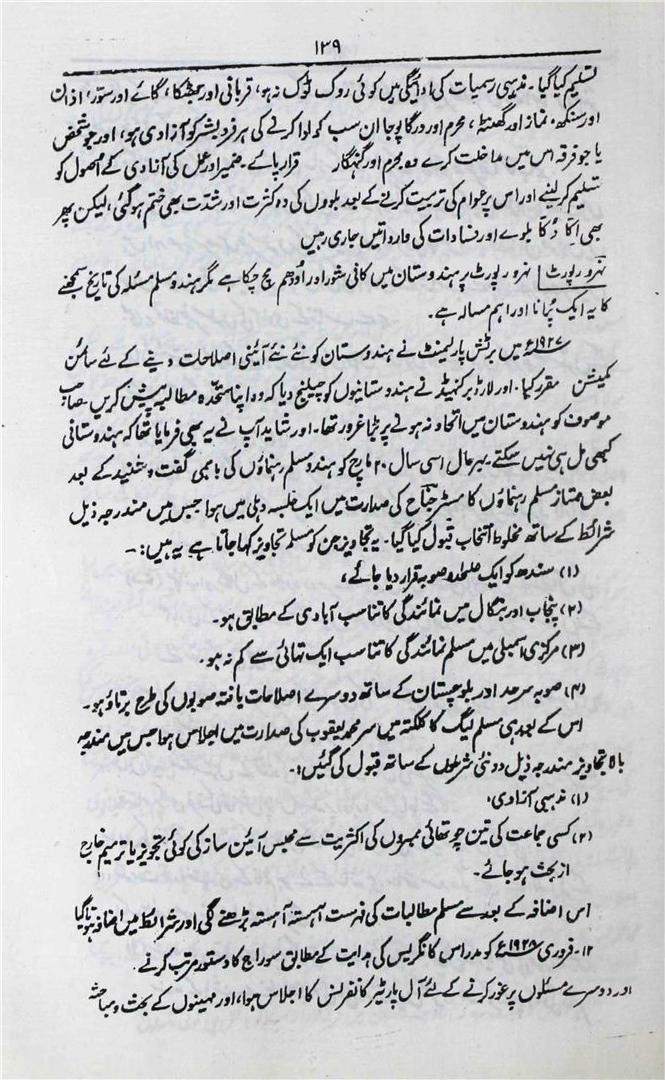 ۱۳۹
تسلیم کیا گیا۔ مذہبی رسمیات کی ادائیگی میں کوئی روک ٹوک نہ ہو، قربانی اور جھٹکا، گائے اور سئور، اذان
اور سنکھ، نماز اور گھنٹہ، محرم اور درگا پوجا ان سب کو ادا کرنے کی ہر فرد بشر کو آزادی ہو، اور جو شخص
یا جو فرقہ اس میں مداخلت کرے وہ مجرم اور گنہگار قرار پائے۔ ضمیر اور عمل کی آزادی کے اُصول کو
تسلیم کر لینے اور اس پر عوام کی تربیت کرنے کے بعد بلووں کی وہ کثرت اور شدّت بھی ختم ہو گئی، لیکن پھر
بھی اِکّا دُکّا بلوے اور فسادات کی وارداتیں جاری رہیں
نہرو رپورٹ | نہرو رپورٹ پر ہندوستان میں کافی شور اور اُودھم مچ چکا ہے مگر ہندو مسلم مسئلہ کی تاریخ سمجھنے
کا یہ ایک پُرانا اور اہم مسالہ ہے۔
۱۹۲۷ء میں برٹش پارلیمنٹ نے ہندوستان کو نئے نئے آئینی اصلاحات دینے کے لئے سائمن
کمیشن مقرر کیا۔ اور لارڈ برکنہیڈ نے ہندوستانیوں کو چیلنج دیا کہ وہ اپنا متحدّہ مطالبہ پیش کریں۔ صاحب
موصوف کو ہندوستان میں اتحاد نہ ہونے پر بڑا غرور تھا۔ اور شاید آپ نے یہ بھی فرمایا تھا کہ ہندوستانی
کبھی مل ہی نہیں سکتے۔ بہر حال اسی سال ۲۰ مارچ کو ہندو مسلم رہنماؤں کی باہمی گفت و شنید کے بعد
بعض ممتاز مسلم رہنماؤں کا مسٹر جناح کی صدارت میں ایک جلسہ دہلی میں ہوا جس میں مندرجہ ذیل
شرائط کے ساتھ مخلوط انتخاب قبول کیا گیا۔ یہ تجاویز جن کو مسلم تجاویز کہا جاتا ہے یہ ہیں:۔
(۱) سندھ کو ایک علیٰحدہ صوبہ قرار دیا جائے،
(۲) پنجاب اور بنگال میں نمائندگی کا تناسب آبادی کے مطابق ہو۔
(۳) مرکزی اسمبلی میں مسلم نمائندگی کا تناسب ایک تہائی سے کم نہ ہو۔
(۴) صوبہ سرحد اور بلوچستان کے ساتھ دوسرے اصلاحات یافتہ صوبوں کی طرح برتاؤ ہو۔
اس کے بعد ہی مسلم لیگ کا کلکتہ میں سر محمد یعقوب کی صدارت میں اجلاس ہوا جس میں مندرجہ
بالا تجاویز مندرجہ ذیل دو نئی شرطوں کے ساتھ قبول کی گئیں:۔
(۱) مذہبی آزادی،
(۲) کسی جماعت کی تین چوتھائی ممبروں کی اکثریت سے مجلس آئین ساز کی کوئی تجویز یا ترمیم خارج
از بحث ہو جائے۔
اس اضافہ کے بعد سے مسلم مطالبات کی فہرست آہستہ آہستہ بڑھنے لگی اور شرائط میں اضافہ ہوتا گیا
۱۲۔ فروری ۱۹۲۸ء کو مدراس کانگریس کی ہدایت کے مطابق سوراج کا دستور مرتب کرنے
اور دوسرے مسئلوں پر غور کرنے کے لئے آل پارٹیز کانفرنس کا اجلاس ہوا، اور مہینوں کے بحث و مباحثہ